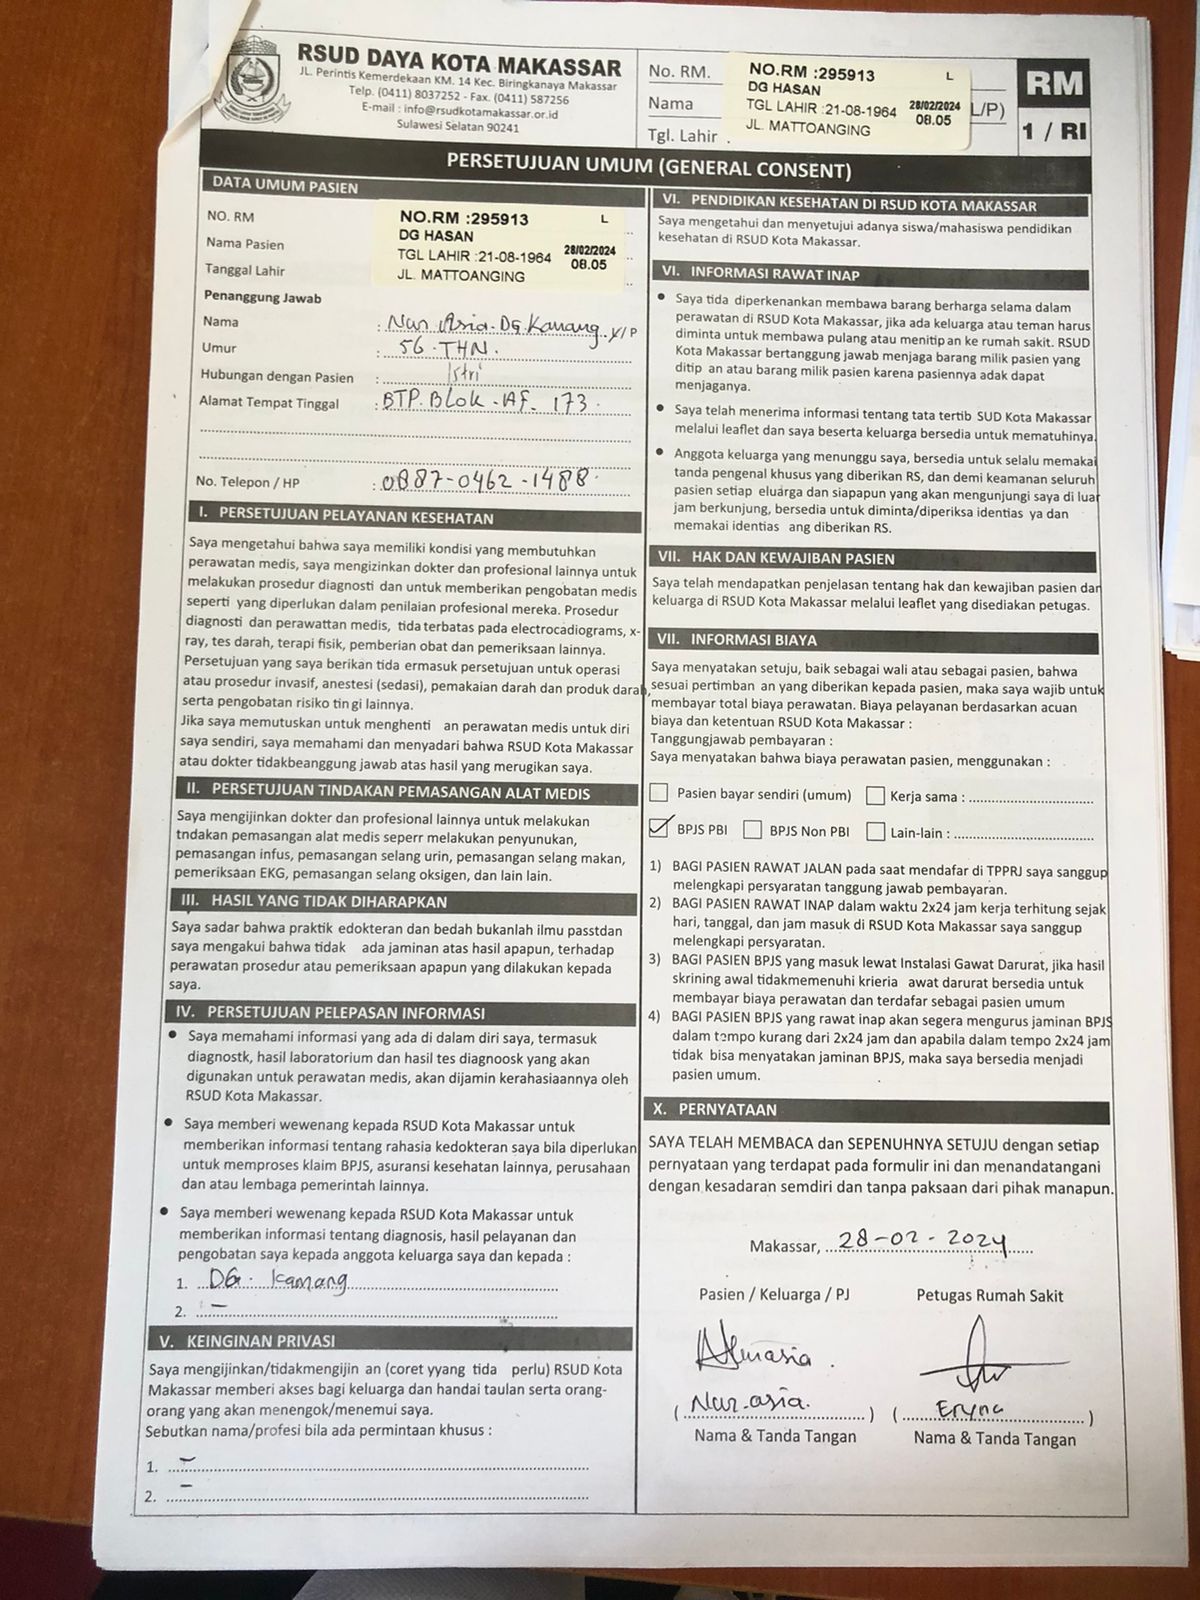 RSUD DAYA KOTA MAKASSAR
JL. Perintis Kemerdekaan KM. 14 Kec. Biringkanaya Makassar
Telp. (0411) 8037252 - Fax. (0411) 587256
E-mail : info@rsudkotamakassar.or.id
Sulawesi Selatan 90241
No. RM.
Nama
Tgl. Lahir
NO.RM :295913 L
DG HASAN
TGL LAHIR :21-08-1964 28/02/2024
JL. MATTOANGING 08.05
L/P)
RM
1 / RI
PERSETUJUAN UMUM (GENERAL CONSENT)
DATA UMUM PASIEN
NO. RM
Nama Pasien
Tanggal Lahir
NO.RM :295913 L
DG HASAN
TGL LAHIR :21-08-1964 28/02/2024
JL. MATTOANGING 08.05
Penanggung Jawab
Nama : Nur Asia. DG. Kanang L/P
Umur : 56. THN.
Hubungan dengan Pasien : Istri
Alamat Tempat Tinggal : BTP. Blok. AF. 173.
No. Telepon / HP : 0887-0462-1488.
I. PERSETUJUAN PELAYANAN KESEHATAN
Saya mengetahui bahwa saya memiliki kondisi yang membutuhkan
perawatan medis, saya mengizinkan dokter dan profesional lainnya untuk
melakukan prosedur diagnosti dan untuk memberikan pengobatan medis
seperti yang diperlukan dalam penilaian profesional mereka. Prosedur
diagnosti dan perawattan medis, tida terbatas pada electrocadiograms, x-
ray, tes darah, terapi fisik, pemberian obat dan pemeriksaan lainnya.
Persetujuan yang saya berikan tida ermasuk persetujuan untuk operasi
atau prosedur invasif, anestesi (sedasi), pemakaian darah dan produk darah,
serta pengobatan risiko tin gi lainnya.
Jika saya memutuskan untuk menghenti an perawatan medis untuk diri
saya sendiri, saya memahami dan menyadari bahwa RSUD Kota Makassar
atau dokter tidakbeanggung jawab atas hasil yang merugikan saya.
II. PERSETUJUAN TINDAKAN PEMASANGAN ALAT MEDIS
Saya mengijinkan dokter dan profesional lainnya untuk melakukan
tndakan pemasangan alat medis seperr melakukan penyunukan,
pemasangan infus, pemasangan selang urin, pemasangan selang makan,
pemeriksaan EKG, pemasangan selang oksigen, dan lain lain.
III. HASIL YANG TIDAK DIHARAPKAN
Saya sadar bahwa praktik edokteran dan bedah bukanlah ilmu passtdan
saya mengakui bahwa tidak ada jaminan atas hasil apapun, terhadap
perawatan prosedur atau pemeriksaan apapun yang dilakukan kepada
saya.
IV. PERSETUJUAN PELEPASAN INFORMASI
• Saya memahami informasi yang ada di dalam diri saya, termasuk
diagnostk, hasil laboratorium dan hasil tes diagnoosk yang akan
digunakan untuk perawatan medis, akan dijamin kerahasiaannya oleh
RSUD Kota Makassar.
• Saya memberi wewenang kepada RSUD Kota Makassar untuk
memberikan informasi tentang rahasia kedokteran saya bila diperlukan
untuk memproses klaim BPJS, asuransi kesehatan lainnya, perusahaan
dan atau lembaga pemerintah lainnya.
• Saya memberi wewenang kepada RSUD Kota Makassar untuk
memberikan informasi tentang diagnosis, hasil pelayanan dan
pengobatan saya kepada anggota keluarga saya dan kepada :
1. DG. Kamang
2. -
V. KEINGINAN PRIVASI
Saya mengijinkan/tidakmengijin an (coret yyang tida perlu) RSUD Kota
Makassar memberi akses bagi keluarga dan handai taulan serta orang-
orang yang akan menengok/menemui saya.
Sebutkan nama/profesi bila ada permintaan khusus :
1. -
2. -
VI. PENDIDIKAN KESEHATAN DI RSUD KOTA MAKASSAR
Saya mengetahui dan menyetujui adanya siswa/mahasiswa pendidikan
kesehatan di RSUD Kota Makassar.
VI. INFORMASI RAWAT INAP
• Saya tida diperkenankan membawa barang berharga selama dalam
perawatan di RSUD Kota Makassar, jika ada keluarga atau teman harus
diminta untuk membawa pulang atau menitip an ke rumah sakit. RSUD
Kota Makassar bertanggung jawab menjaga barang milik pasien yang
ditip an atau barang milik pasien karena pasiennya adak dapat
menjaganya.
• Saya telah menerima informasi tentang tata tertib SUD Kota Makassar
melalui leaflet dan saya beserta keluarga bersedia untuk mematuhinya.
• Anggota keluarga yang menunggu saya, bersedia untuk selalu memakai
tanda pengenal khusus yang diberikan RS, dan demi keamanan seluruh
pasien setiap eluarga dan siapapun yang akan mengunjungi saya di luar
jam berkunjung, bersedia untuk diminta/diperiksa identias ya dan
memakai identias ang diberikan RS.
VII. HAK DAN KEWAJIBAN PASIEN
Saya telah mendapatkan penjelasan tentang hak dan kewajiban pasien dan
keluarga di RSUD Kota Makassar melalui leaflet yang disediakan petugas.
VII. INFORMASI BIAYA
Saya menyatakan setuju, baik sebagai wali atau sebagai pasien, bahwa
sesuai pertimban an yang diberikan kepada pasien, maka saya wajib untuk
membayar total biaya perawatan. Biaya pelayanan berdasarkan acuan
biaya dan ketentuan RSUD Kota Makassar :
Tanggungjawab pembayaran :
Saya menyatakan bahwa biaya perawatan pasien, menggunakan :
☐ Pasien bayar sendiri (umum) ☐ Kerja sama :
☑ BPJS PBI ☐ BPJS Non PBI ☐ Lain-lain :
1) BAGI PASIEN RAWAT JALAN pada saat mendafar di TPPRJ saya sanggup
melengkapi persyaratan tanggung jawab pembayaran.
2) BAGI PASIEN RAWAT INAP dalam waktu 2x24 jam kerja terhitung sejak
hari, tanggal, dan jam masuk di RSUD Kota Makassar saya sanggup
melengkapi persyaratan.
3) BAGI PASIEN BPJS yang masuk lewat Instalasi Gawat Darurat, jika hasil
skrining awal tidakmemenuhi krieria awat darurat bersedia untuk
membayar biaya perawatan dan terdafar sebagai pasien umum
4) BAGI PASIEN BPJS yang rawat inap akan segera mengurus jaminan BPJS
dalam tempo kurang dari 2x24 jam dan apabila dalam tempo 2x24 jam
tidak bisa menyatakan jaminan BPJS, maka saya bersedia menjadi
pasien umum.
X. PERNYATAAN
SAYA TELAH MEMBACA dan SEPENUHNYA SETUJU dengan setiap
pernyataan yang terdapat pada formulir ini dan menandatangani
dengan kesadaran semdiri dan tanpa paksaan dari pihak manapun.
Makassar, 28-02-2024
Pasien / Keluarga / PJ Petugas Rumah Sakit
(Nur.asia.) (Eryna)
Nama & Tanda Tangan Nama & Tanda Tangan